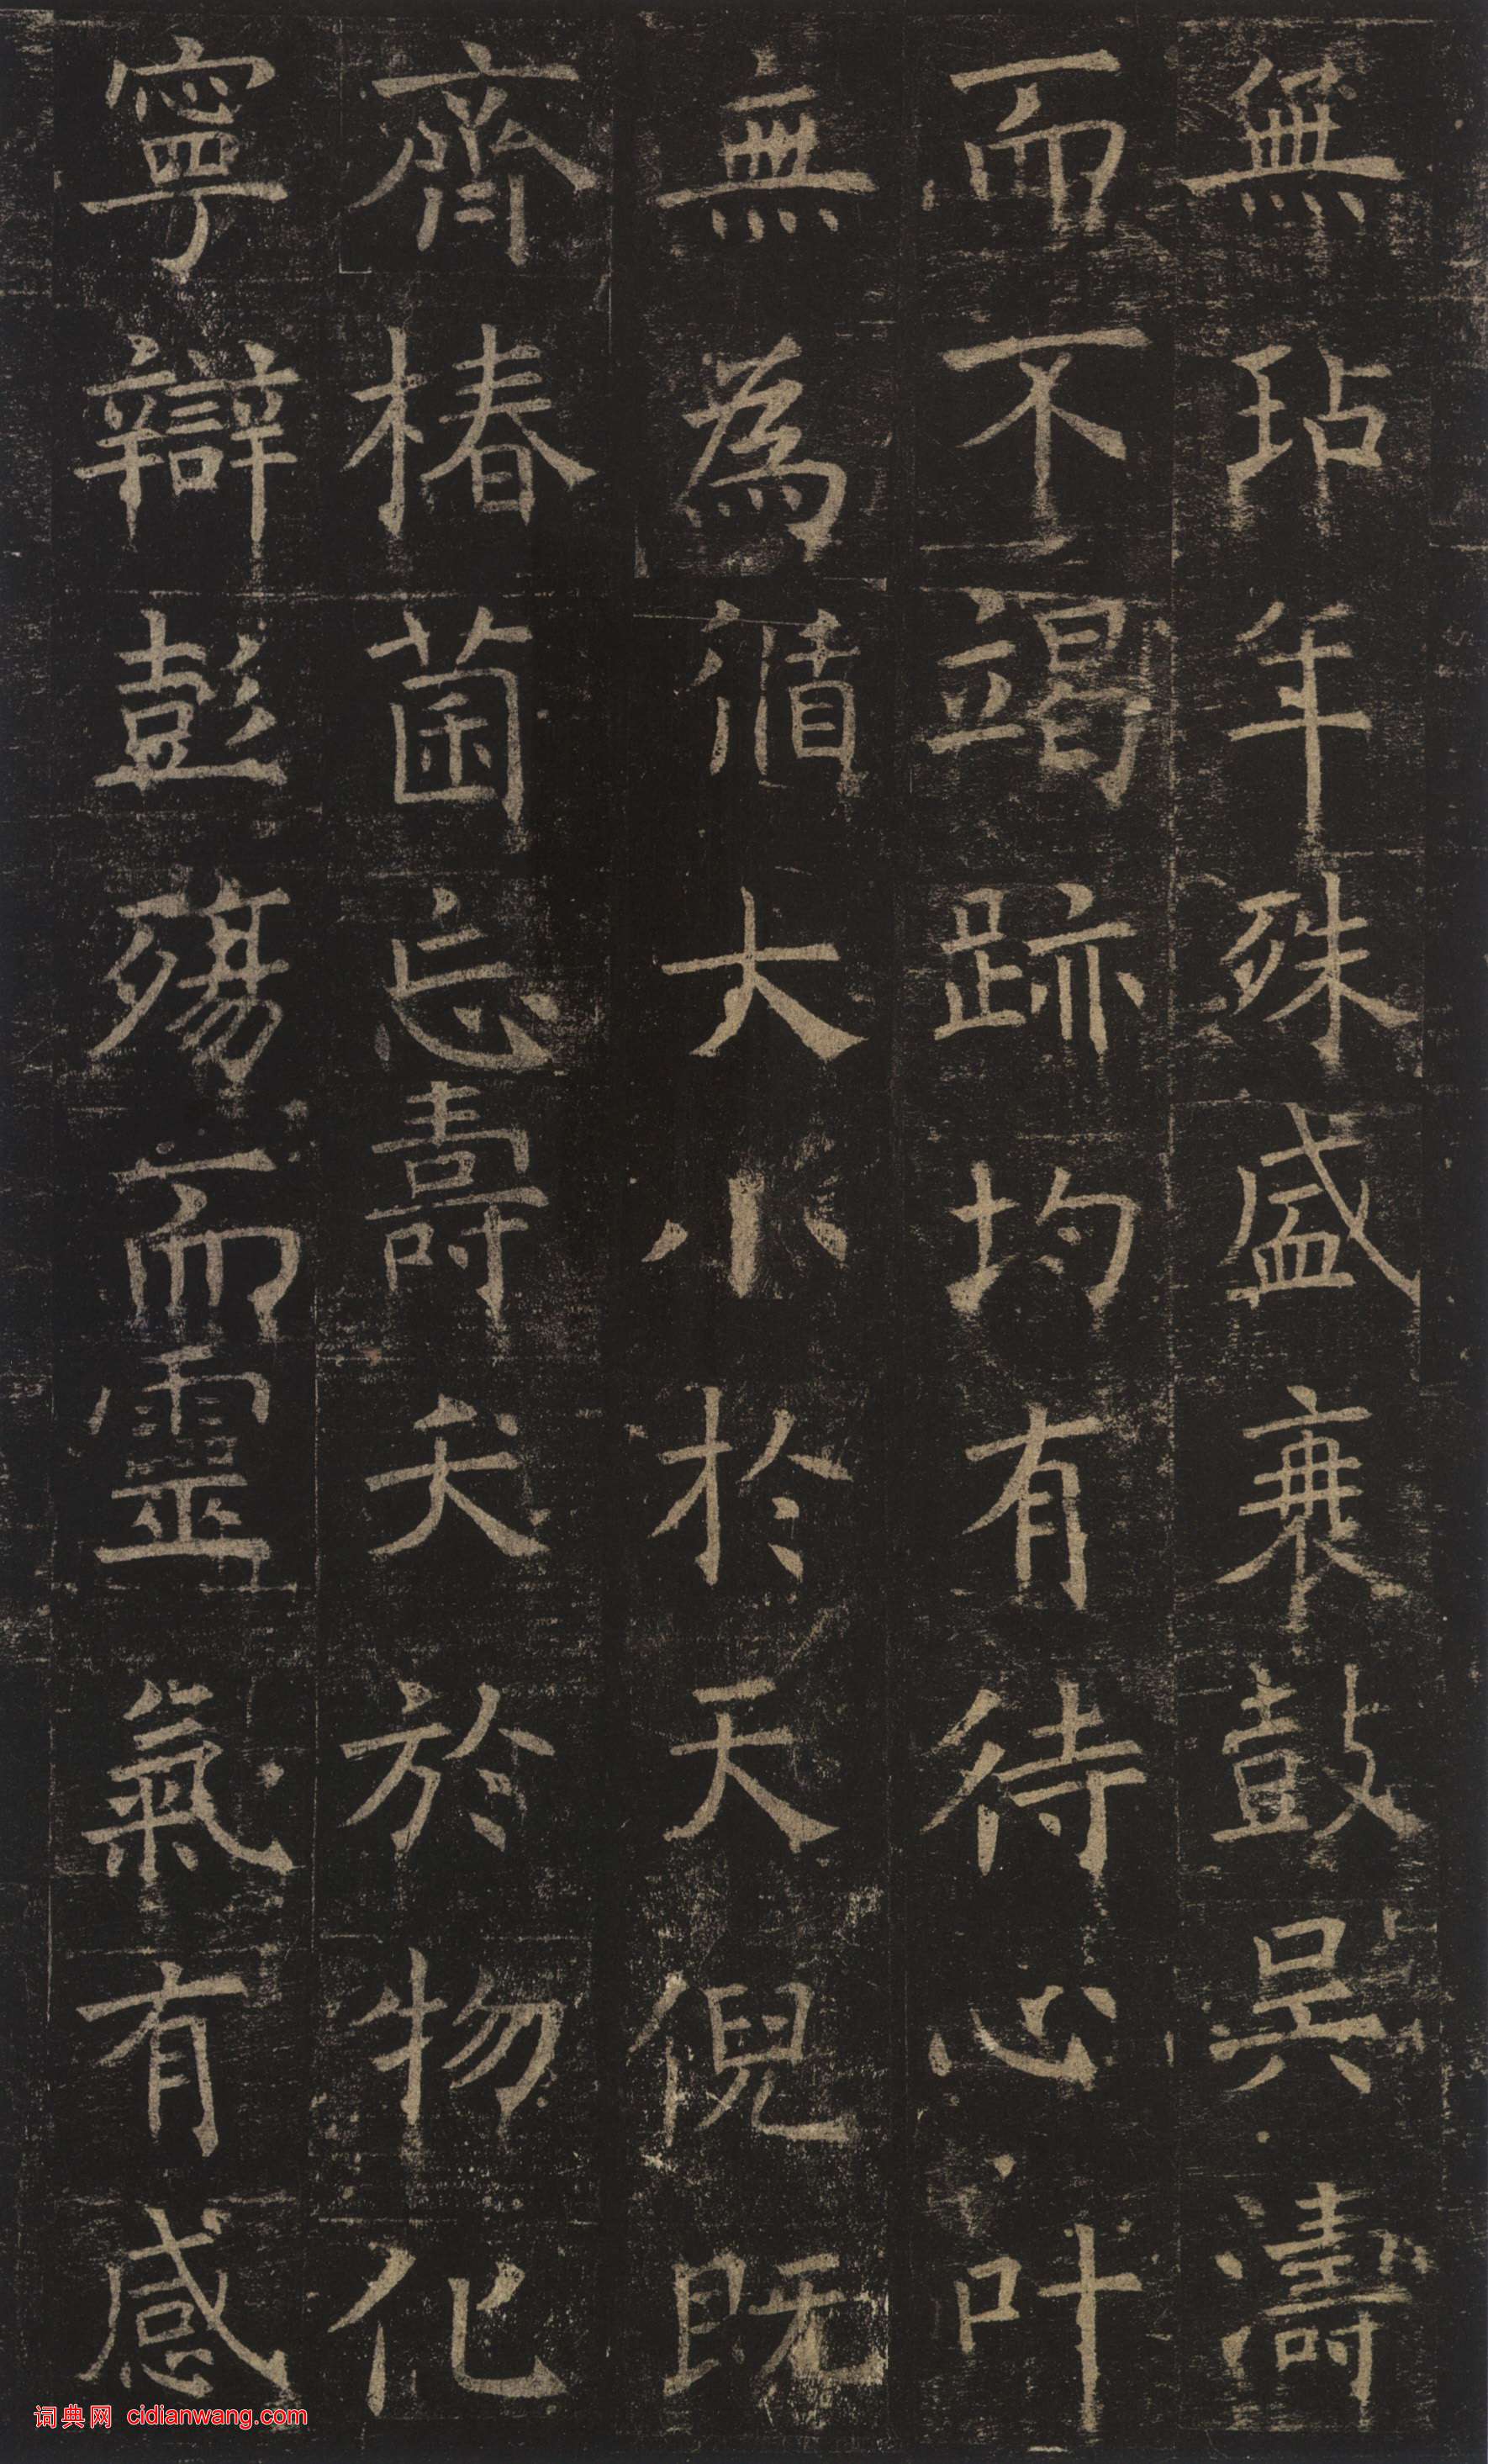 無玷年殊盛衰鼓吳濤
而不竭跡均有待心叶
無為循大小於天倪既
齊椿菌忘壽夭於物化
寧辯彭殤而靈氣有感
词典网 cidianwang.com